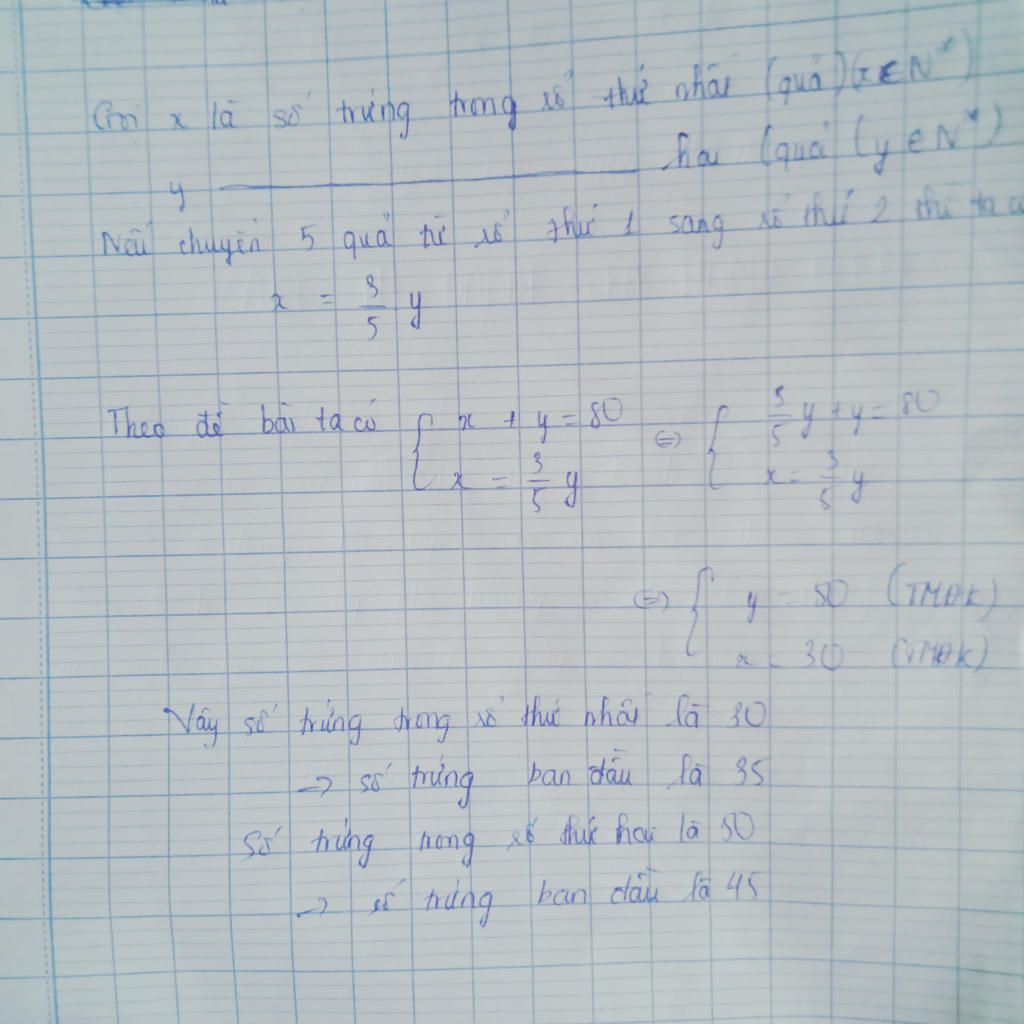 Gọi x là số trứng trong rổ thứ nhất (quả) (x ∈ N*)
y ——————— hai (quả (y ∈ N*)
Nếu chuyển 5 quả từ rổ thứ 1 sang rổ thứ 2 thì ta có
x = 3/5 y
Theo đề bài ta có { x + y = 80 ; x = 3/5 y ⇔ { 3/5 y + y = 80 ; x = 3/5 y
⇔ { y = 50 (TMĐK) ; x = 30 (TMĐK)
Vậy số trứng trong rổ thứ nhất là 30
→ số trứng ban đầu là 35
Số trứng trong rổ thứ hai là 50
→ số trứng ban đầu là 45